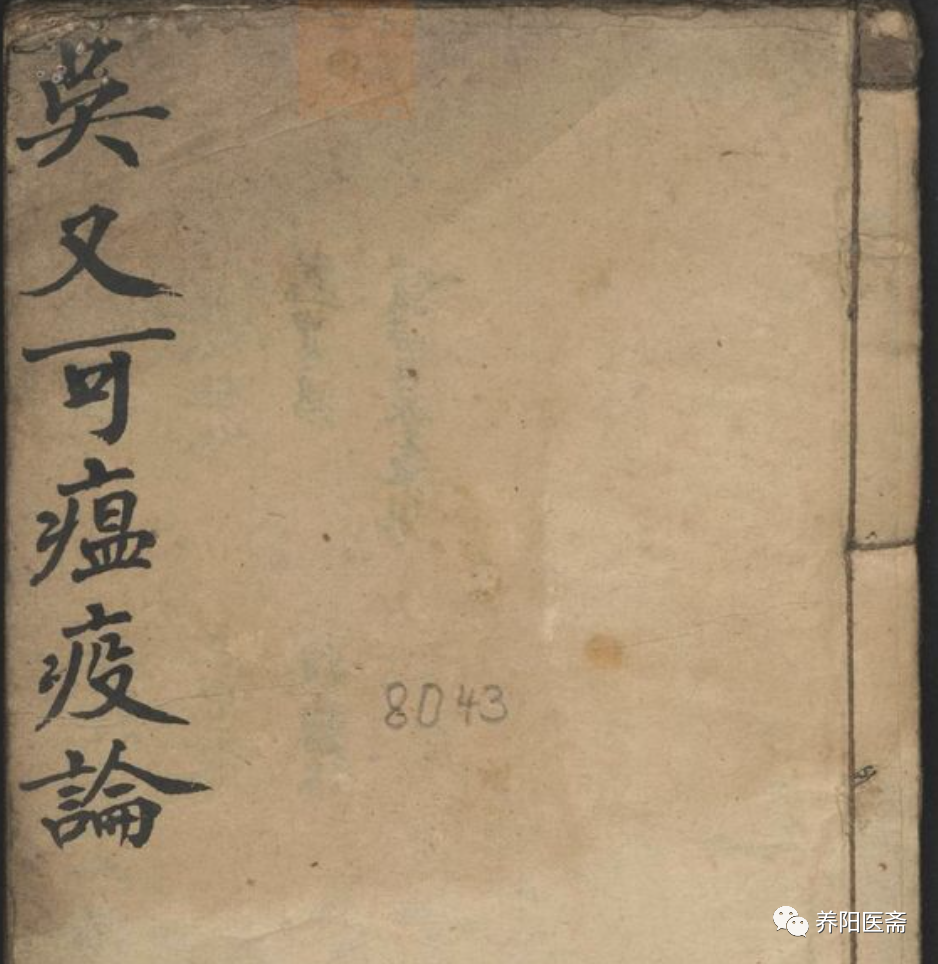 吴又可瘟疫論
8043
养阳医斋